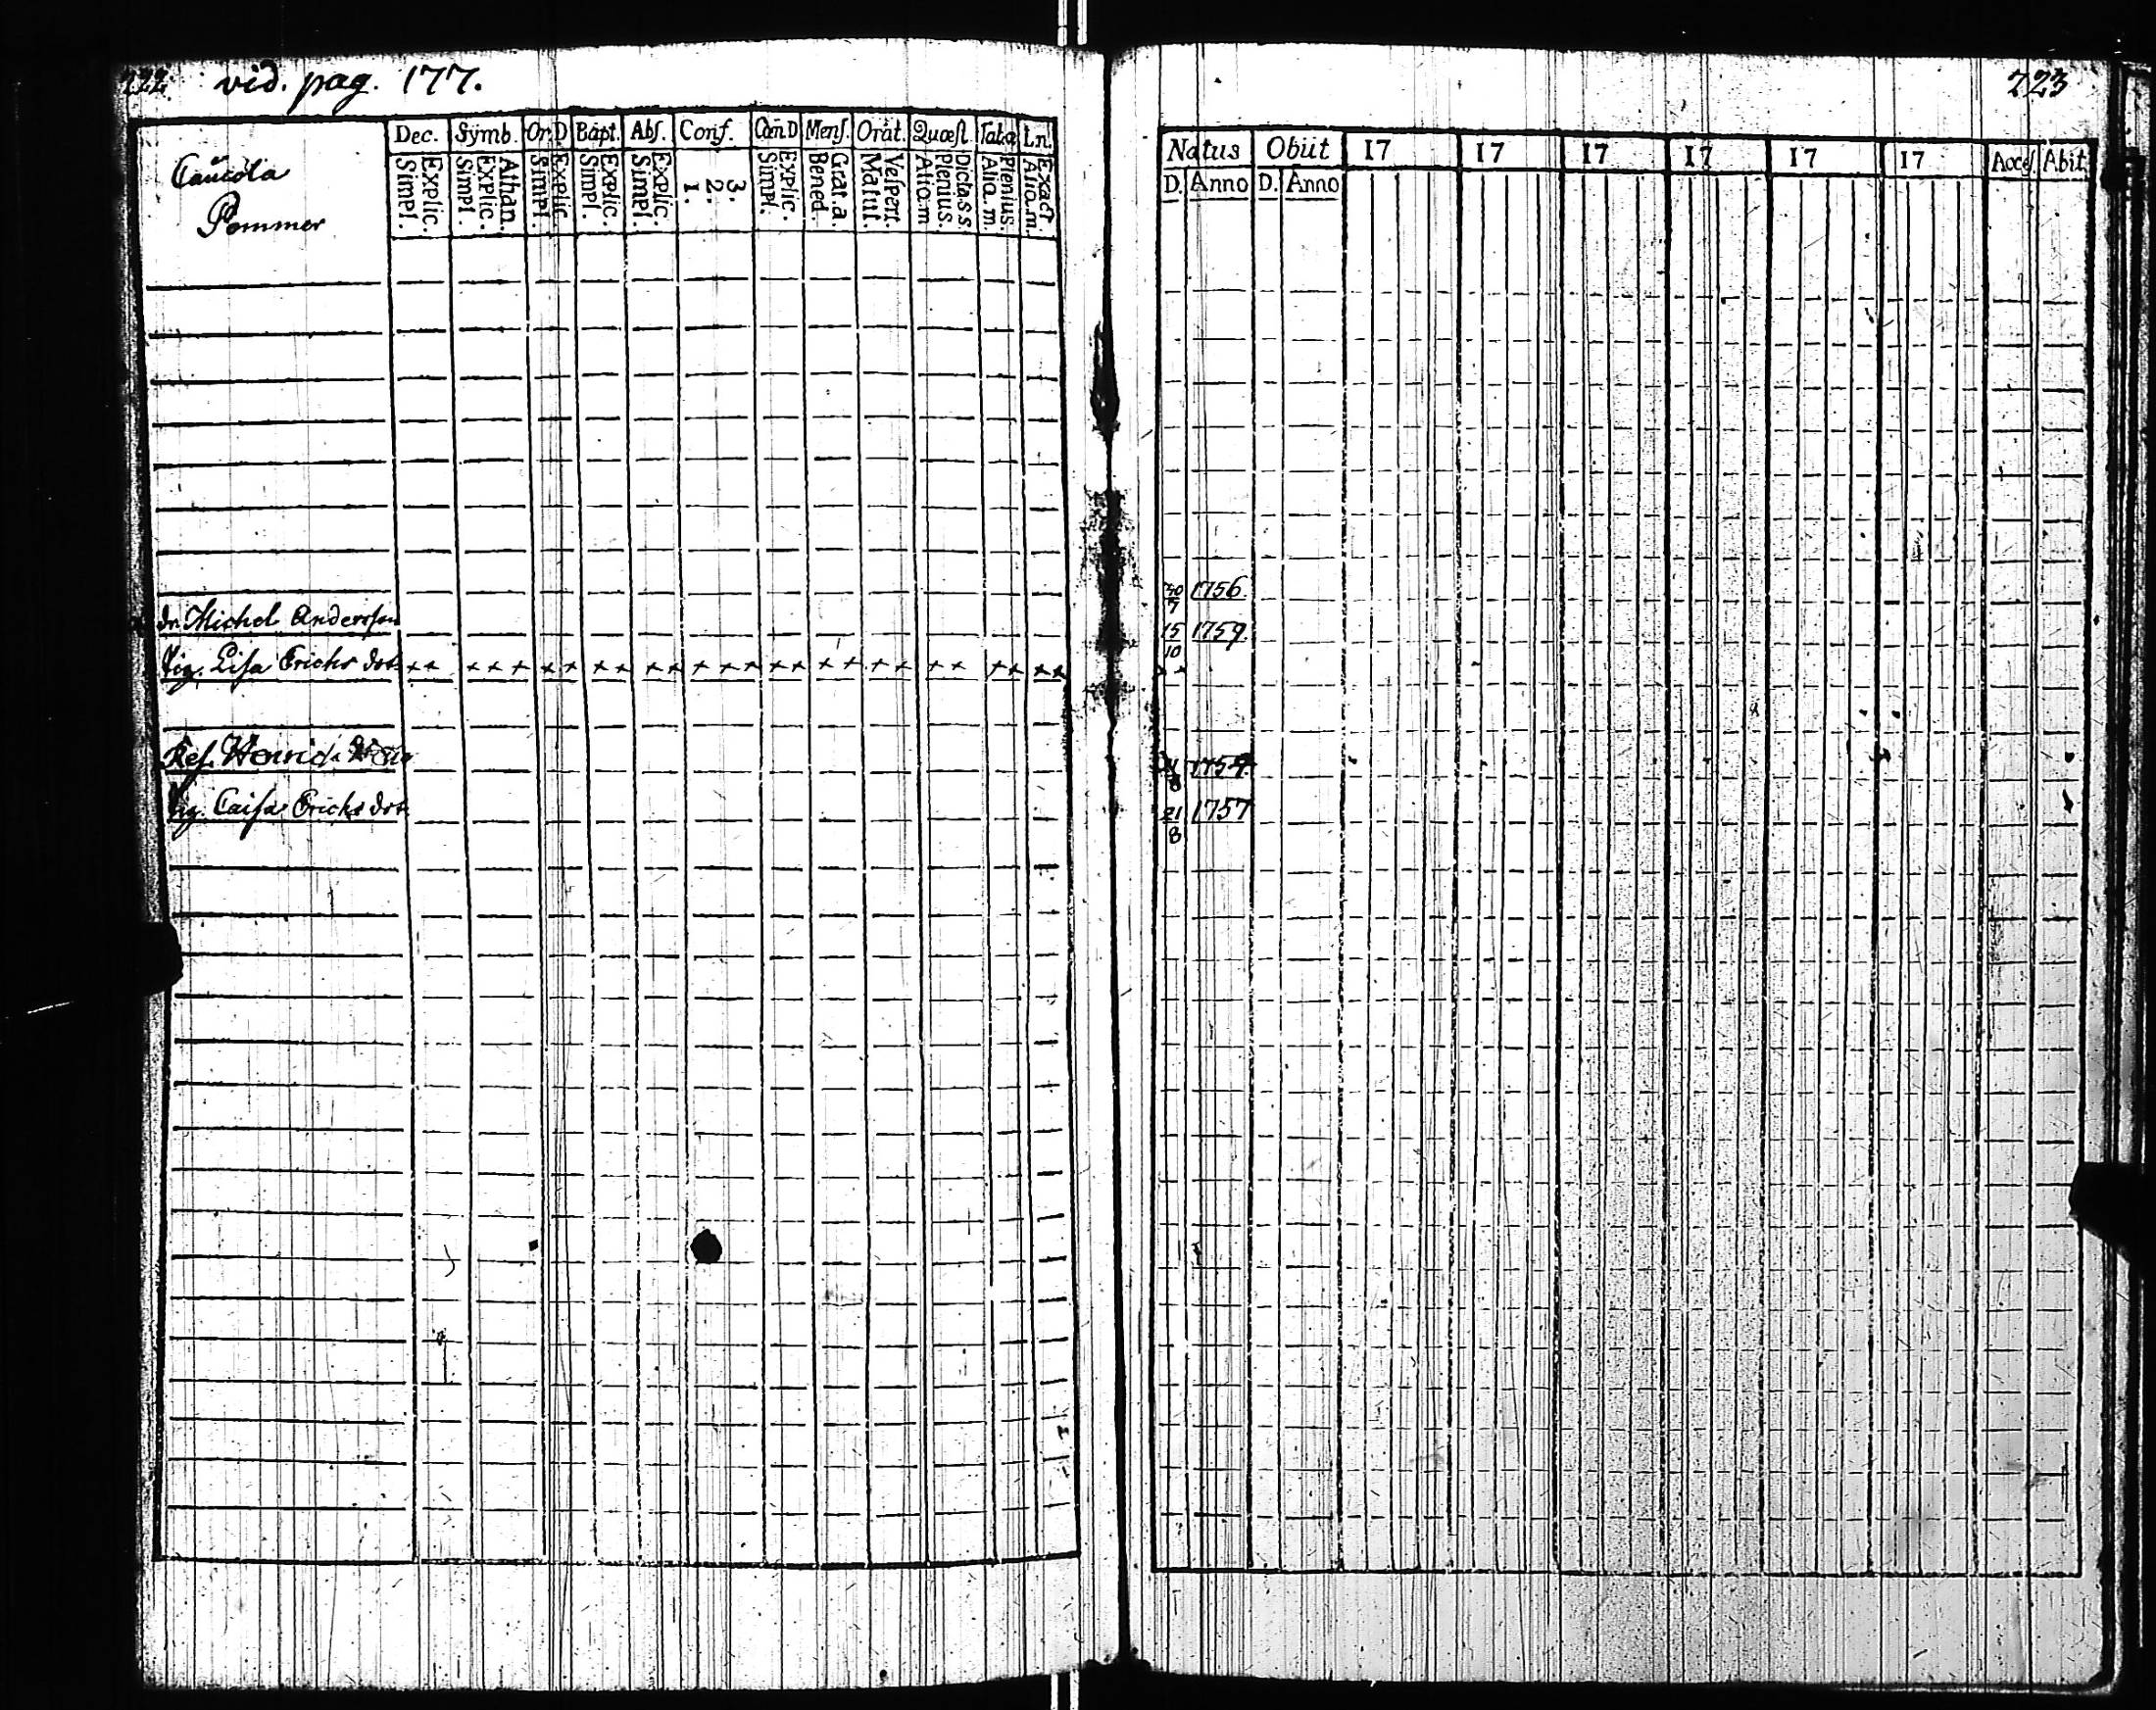 222. vid. pag. 177.
Caucola
Pommer
Dec. Symb. Or.D Bapt. Abs. Conf. Cœn D Mens. Orat. Quæst. Tab.æ Ln.
Simpl. Explic. Simpl. Explic. Athan. Simpl. Explic Simpl. Explic. Simpl. Explic. 1. 2. 3. Simpl. Explic. Bened. Grat.a. Matut. Vespert. Aliq.m Plenius. Dicta.s.s. Aliq.m. Plenius. Aliq.m. Exact
dr. Michel Andersson
Pig. Lisa Erichs dot. + + + + + + + + + + + + + + + + + + + + + + + + + + +
Henrich
Pig. Caisa Erichs dot.
223
Natus Obiit 17 17 17 17 17 17 Acces. Abit
D. Anno D. Anno
30/7 1756.
15/10 1759.
21/8 1757